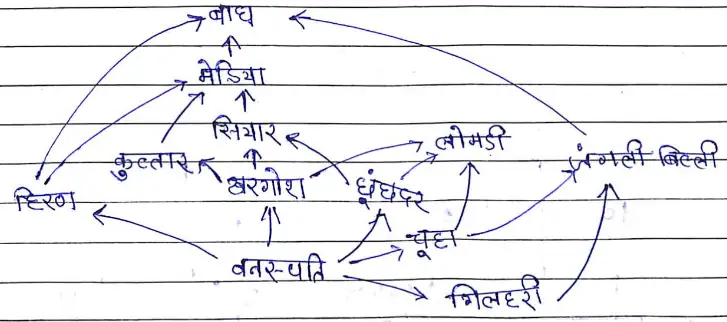 बाघ
भेडिया
सियार
लोमड़ी
कुत्तार
जंगली बिल्ली
हिरण
खरगोश
छुंछुंदर
चूहा
वनस्पति
गिलहरी